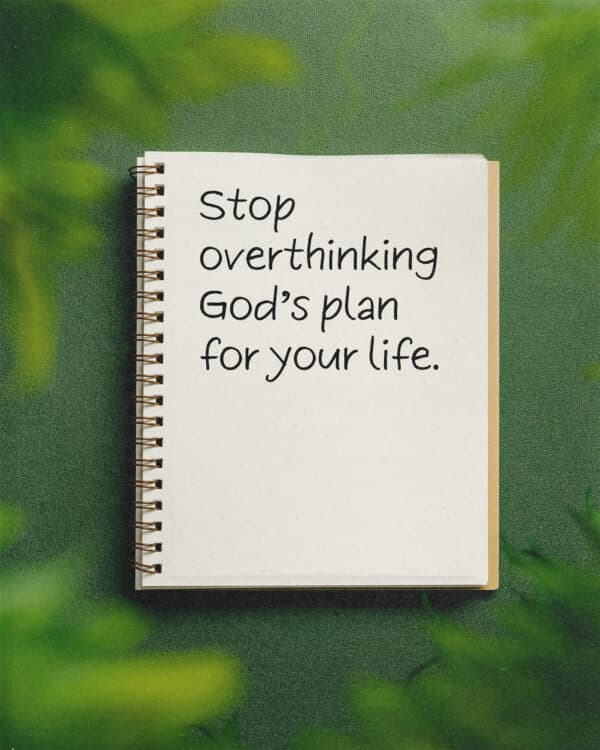 Stop
overthinking
God’s plan
for your life.